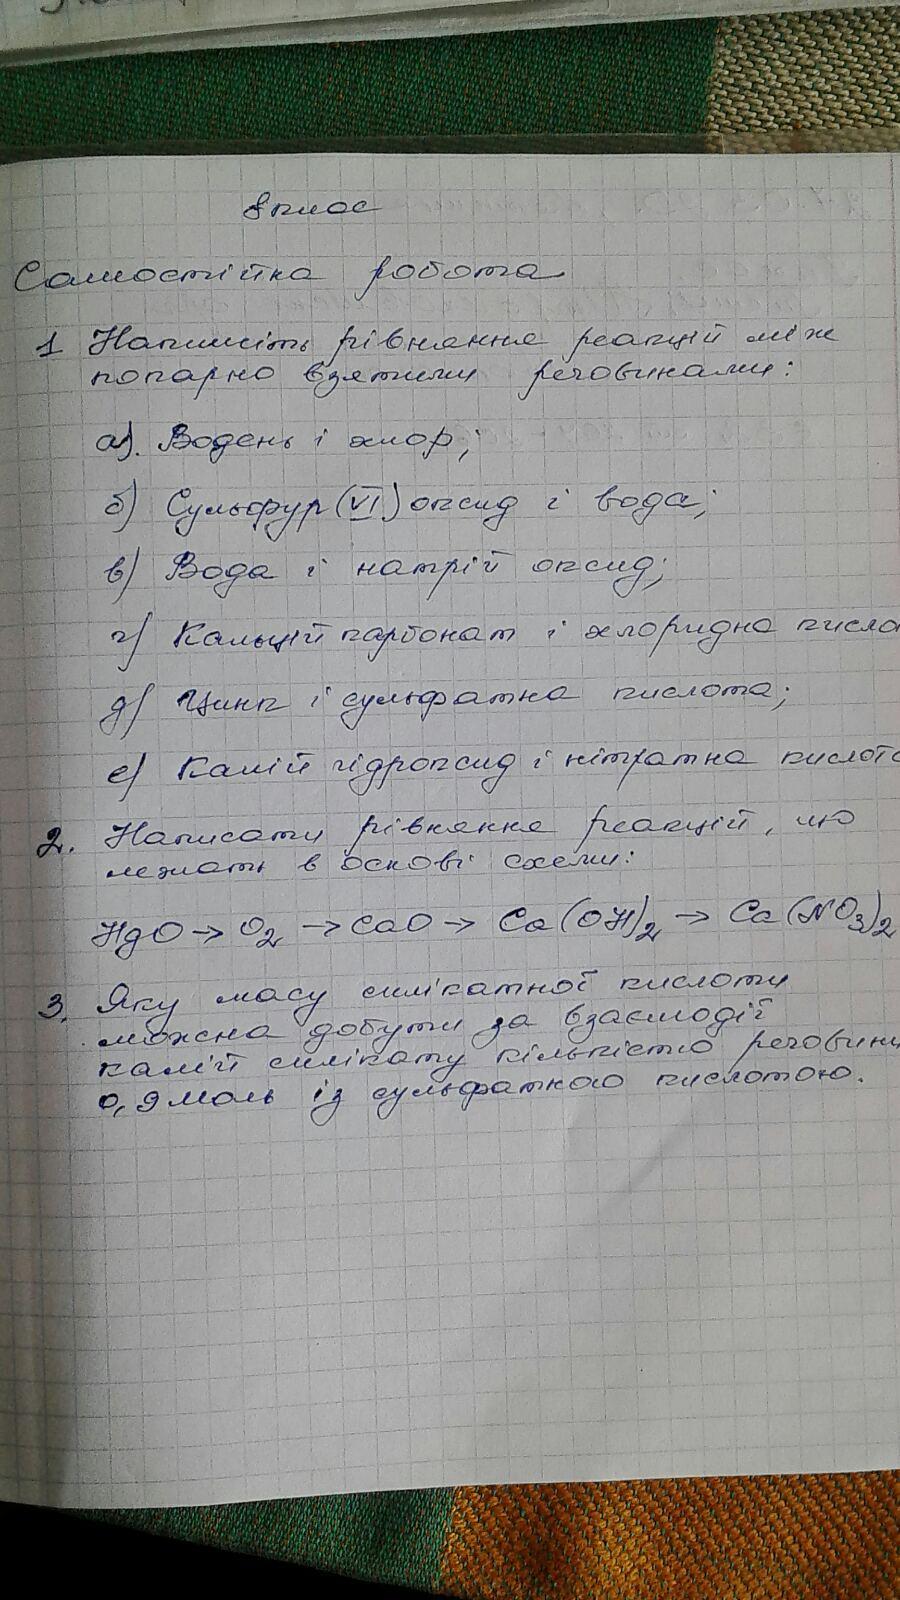 8 клас
Самостійна робота
1 Напишіть рівняння реакцій між
попарно взятими речовинами:
а). Водень і хлор;
б) Сульфур (VI) оксид і вода;
в) Вода і натрій оксид;
г) Кальцій карбонат і хлоридна кисло
д) Цинк і сульфатна кислота;
е) Калій гідроксид і нітратна кислот
2. Написати рівняння реакцій, що
лежать в основі схеми:
HgO → O2 → CaO → Ca(OH)2 → Ca(NO3)2
3. Яку масу силікатної кислоти
можна добути за взаємодії
калій силікату кількістю речовин
0,9 моль із сульфатною кислотою.